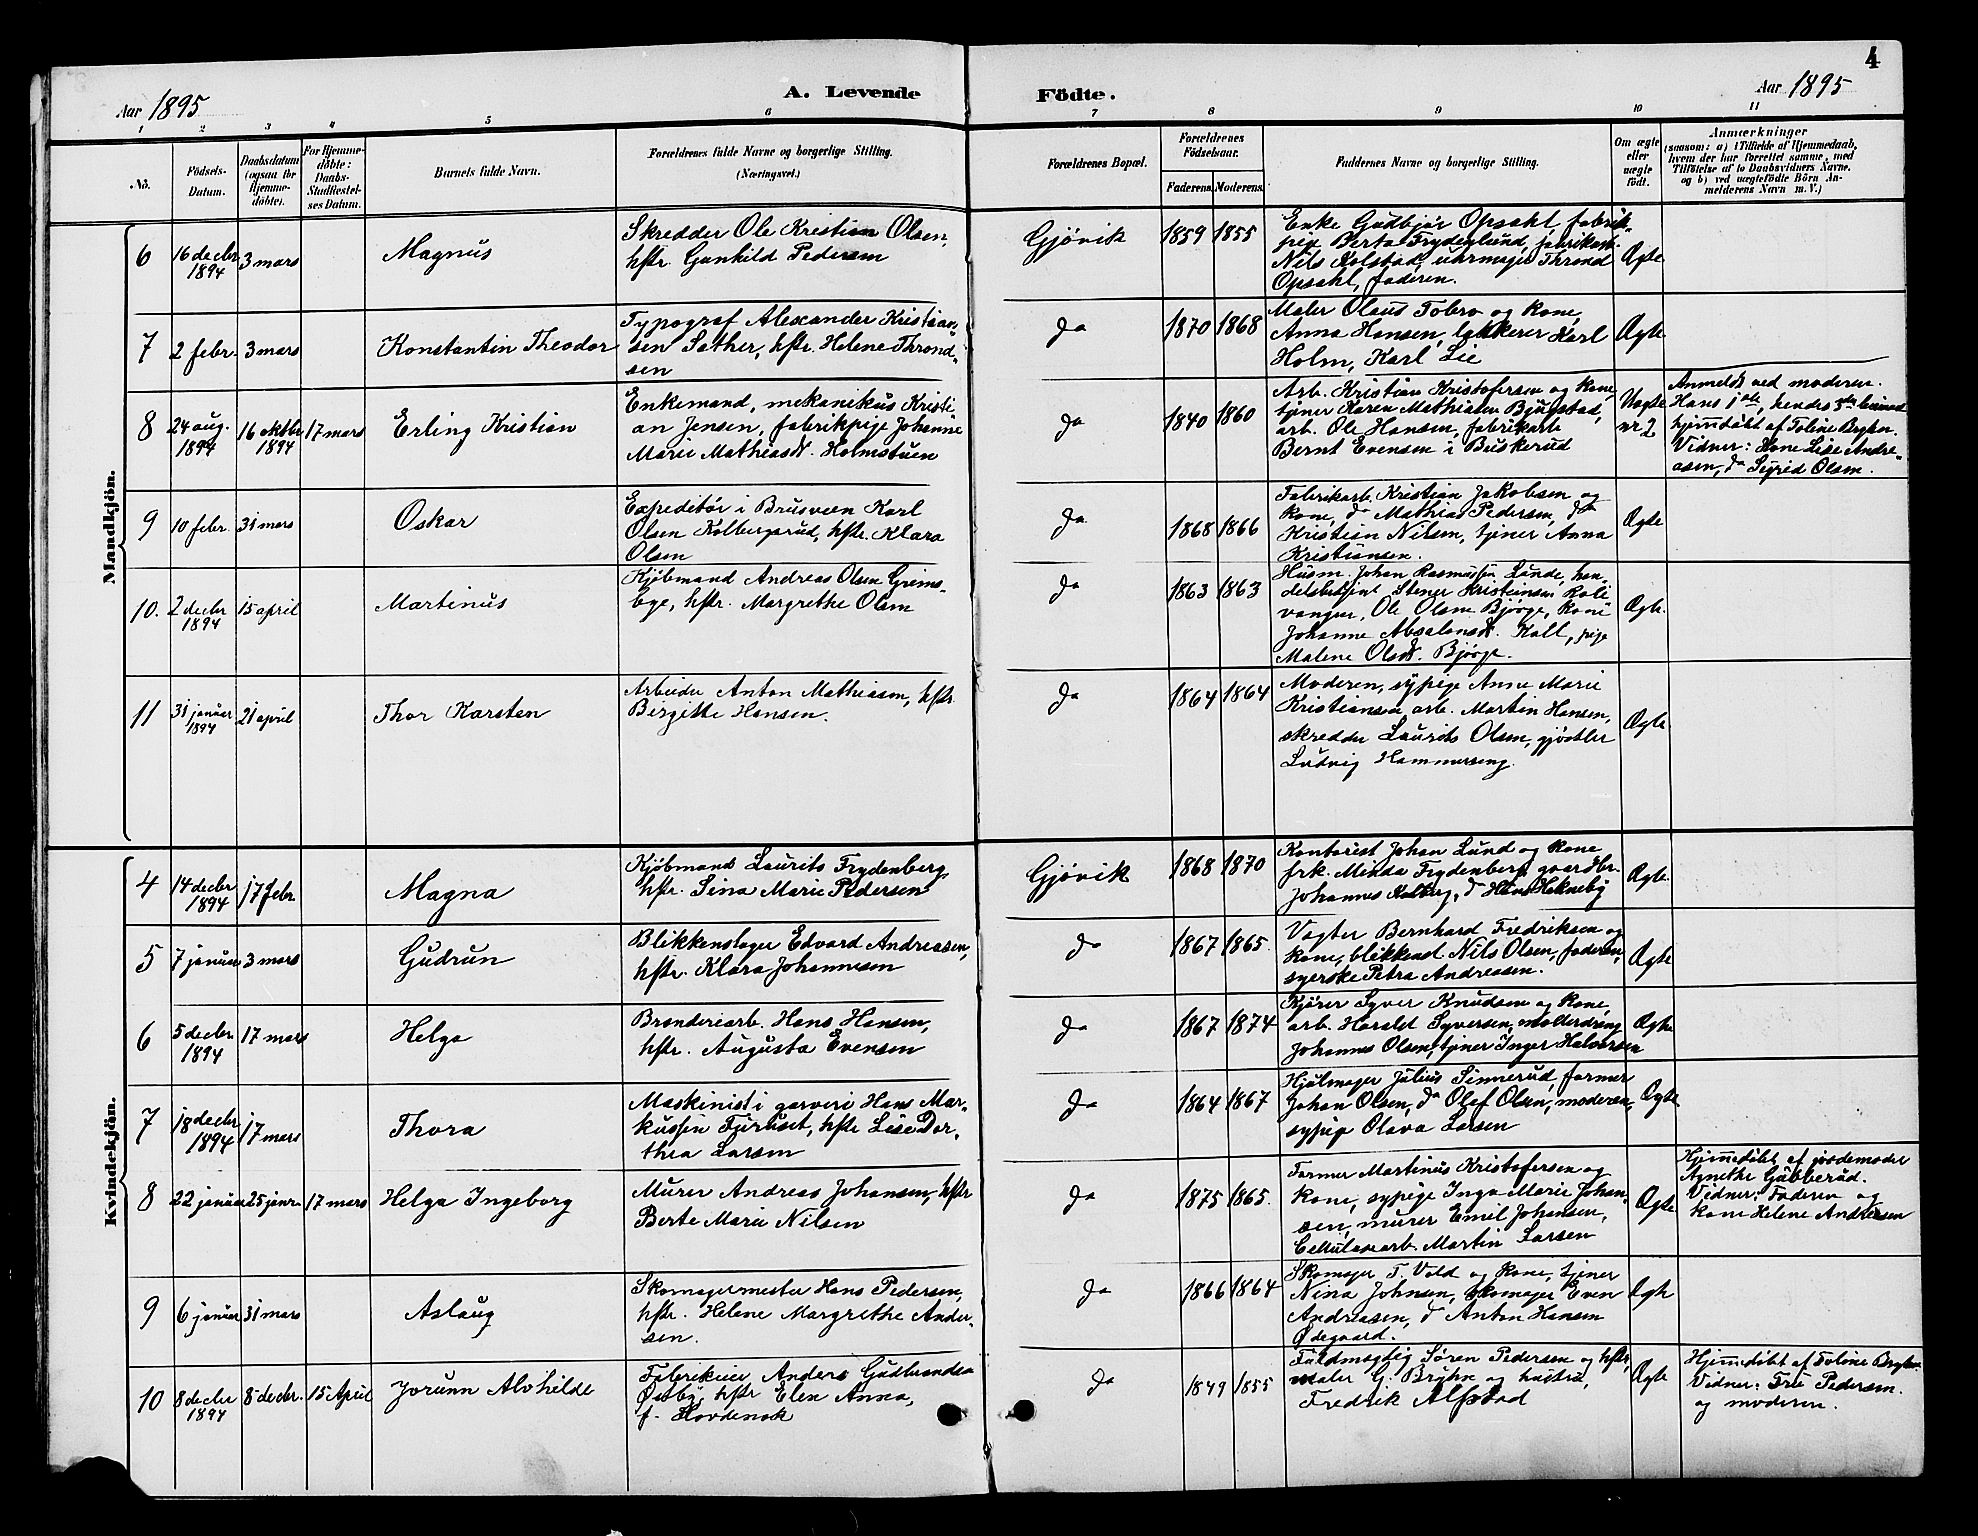 4
Aar 1895
A. Levende
Födte.
Aar 1895
1 2 3 4 5 6 7 8 9 10 11
No.
Födsels-
Datum.
Daabsdatum
(ogsaa for
Hjemme-
döbte).
For Hjemme-
döbte:
Daabs-
Stadfæstel-
ses Datum.
Barnets fulde Navn.
Forældrenes fulde Navne og borgerlige Stilling.
(Næringsvei.)
Forældrenes Bopæl.
Forældrenes
Födselsaar.
Faderens. Moderens.
Faddernes Navne og borgerlige Stilling.
Om ægte
eller
uægte
födt.
Anmærkninger
(saasom: a) i Tilfælde af Hjemmedaab,
hvem der har forrettet samme, med
Tilföielse af to Daabsvidners Navne,
og b) ved uægtefödte Börn An-
melderens Navn m. V.)
Mandkjön.
6
16 decbr
1894
3 mars
Magnus
Skredder Ole Kristian Olsen,
hstr. Gunhild Pedersen
Gjövik
1859 1855
Enke Gudbjör Opsahl, fabrik-
pige Berta Frydenlund, fabrikarb.
Nils Kolstad, uhrmager Thrond
Opsahl, faderen.
Ægte
7
2 febr.
3 mars
Konstantin Theodor
Typograf Alexander Kristian-
sen Sather, hstr. Helene Thrond-
sen
do
1870 1868
Maler Olaus Fobro og kone,
Anna Hansen, lakkerer Karl
Holm, Karl Lie
Ægte
8
24 aug.
1894
16 oktbr
1894
17 mars
Erling Kristian
Enkemand, mekanikus Kristi-
an Jensen, fabrikpige Johanne
Marie Mathiasd. Holmstuen
do
1840 1860
Arb. Kristian Kristofersen og kone,
tjener Karen Mathiasen Bjugstad,
arb. Ole Hansen, fabrikarb
Bernt Evensen i Buskerud
Uægte
nr 2
Anmeldt ved moderen.
Hans 1ste, hendes
hjemmedöbt af Toline Bryhn.
Vidner: Kone Lise Andre-
asen, do Sigrid Olsen.
9
10 febr.
31 mars
Oskar
Expeditör i Brusveen Karl
Olsen Kolbergsrud, hstr. Klara
Olsen
do
1868 1866
Fabrikarb. Kristian Jakobsen og
kone, do Mathias Pedersen, do
Kristian Nilsen, tjener Anna
Kristiansen.
Ægte
10.
2 decbr
1894
15 april
Martinus
Kjöbmand Andreas Olsen Grims-
ege, hstr. Margrethe Olsen
do
1863 1863
Husm. Johan Rasmussen Lunde, han-
delsbetjent Stener Kristiansen
Ole Olsen Bjørge, kone
Johanne Absalonsd. Kall, pige
Malene Olsd. Bjørge.
Ægte.
11
31 januar
1894
21 april
Thor Karsten
Arbeider Anton Mathiasen, hstr.
Birgitte Hansen.
do
1864 1864
Moderen, sypige Anne Marie
Kristiansen arb. Martin Hansen,
skredder Laurits Olsen, gjörtler
Ludvig Hammerseng.
Ægte
Kvindekjön.
4
14 decbr
1894
17 febr.
Magna
Kjöbmand Laurits Frydenberg
hstr. Sina Marie Pedersen
Gjövik
1868 1870
Kontorist Johan Lund og kone
frk. Minda Frydenberg, gaardbr.
Johannes Kolberg, do Hans Hekneby
Ægte.
5
7 januar
3 mars
Gudrun
Blikkenslager Edvard Andreasen,
hstr. Klara Johannesen
do
1867 1865
Vogter Bernhard Fredriksen og
kone, blikkensl Nils Olsen, faderen,
syerske Petra Andreasen.
Ægte
6
5 decbr.
1894
17 mars
Helga
Brænderiarb. Hans Hansen,
hstr. Augusta Evensen
do
1867 1874
Kjører Syver Knudsen og kone,
arb. Harald Syversen, mølledreng
Johannes Olsen, tjener Inger Halvorsen
Ægte
7
18 decbr
1894
17 mars
Thora
Maskinist i garveri Hans Mar-
kussen Furuset, hstr Lise Dor-
thea Larsen
do
1864 1867
Hjulmager Julius Sinnerud, former
Johan Olsen, do Olaf Olsen, moderen,
sypige Olava Larsen
Ægte
8
22 januar
25 janr.
17 mars
Helga Ingeborg
Murer Andreas Johansen, hstr
Berte Marie Nilsen
do
1875 1865
Former Martinus Kristofersen og
kone, sypige Inga Marie Johan-
sen, murer Emil Johansen,
Cellulosearb. Martin Larsen
Ægte
Hjemmedöbt af jordemoder
Agnethe Gubberud.
Vidner: Faderen og
kone Helene Andersen
9
6 januar
31 mars
Aslaug
Skomagermester Hans Pedersen,
hstr. Helene Margrethe Ander-
sen.
do
1866 1864
Skomager T. Vold og kone, tjener
Nina Johnsen, skomager Even
Andreasen, do Anton Hansen
Ødegaard.
Ægte
10
8 decbr
1894
8 decbr.
15 April
Jorunn Alvhilde
Fabrikeier Anders Gudbrandsen
Østby, hstr Elen Anna,
f. Hovdenak
do
1849 1855
Fuldmægtig Søren Pedersen og hstr,
maler G. Bryhn og hustru,
Fredrik Alfstad
Ægte
Hjemmedöbt af Toline Bryhn.
Vidner: Fru Pedersen.
og moderen.